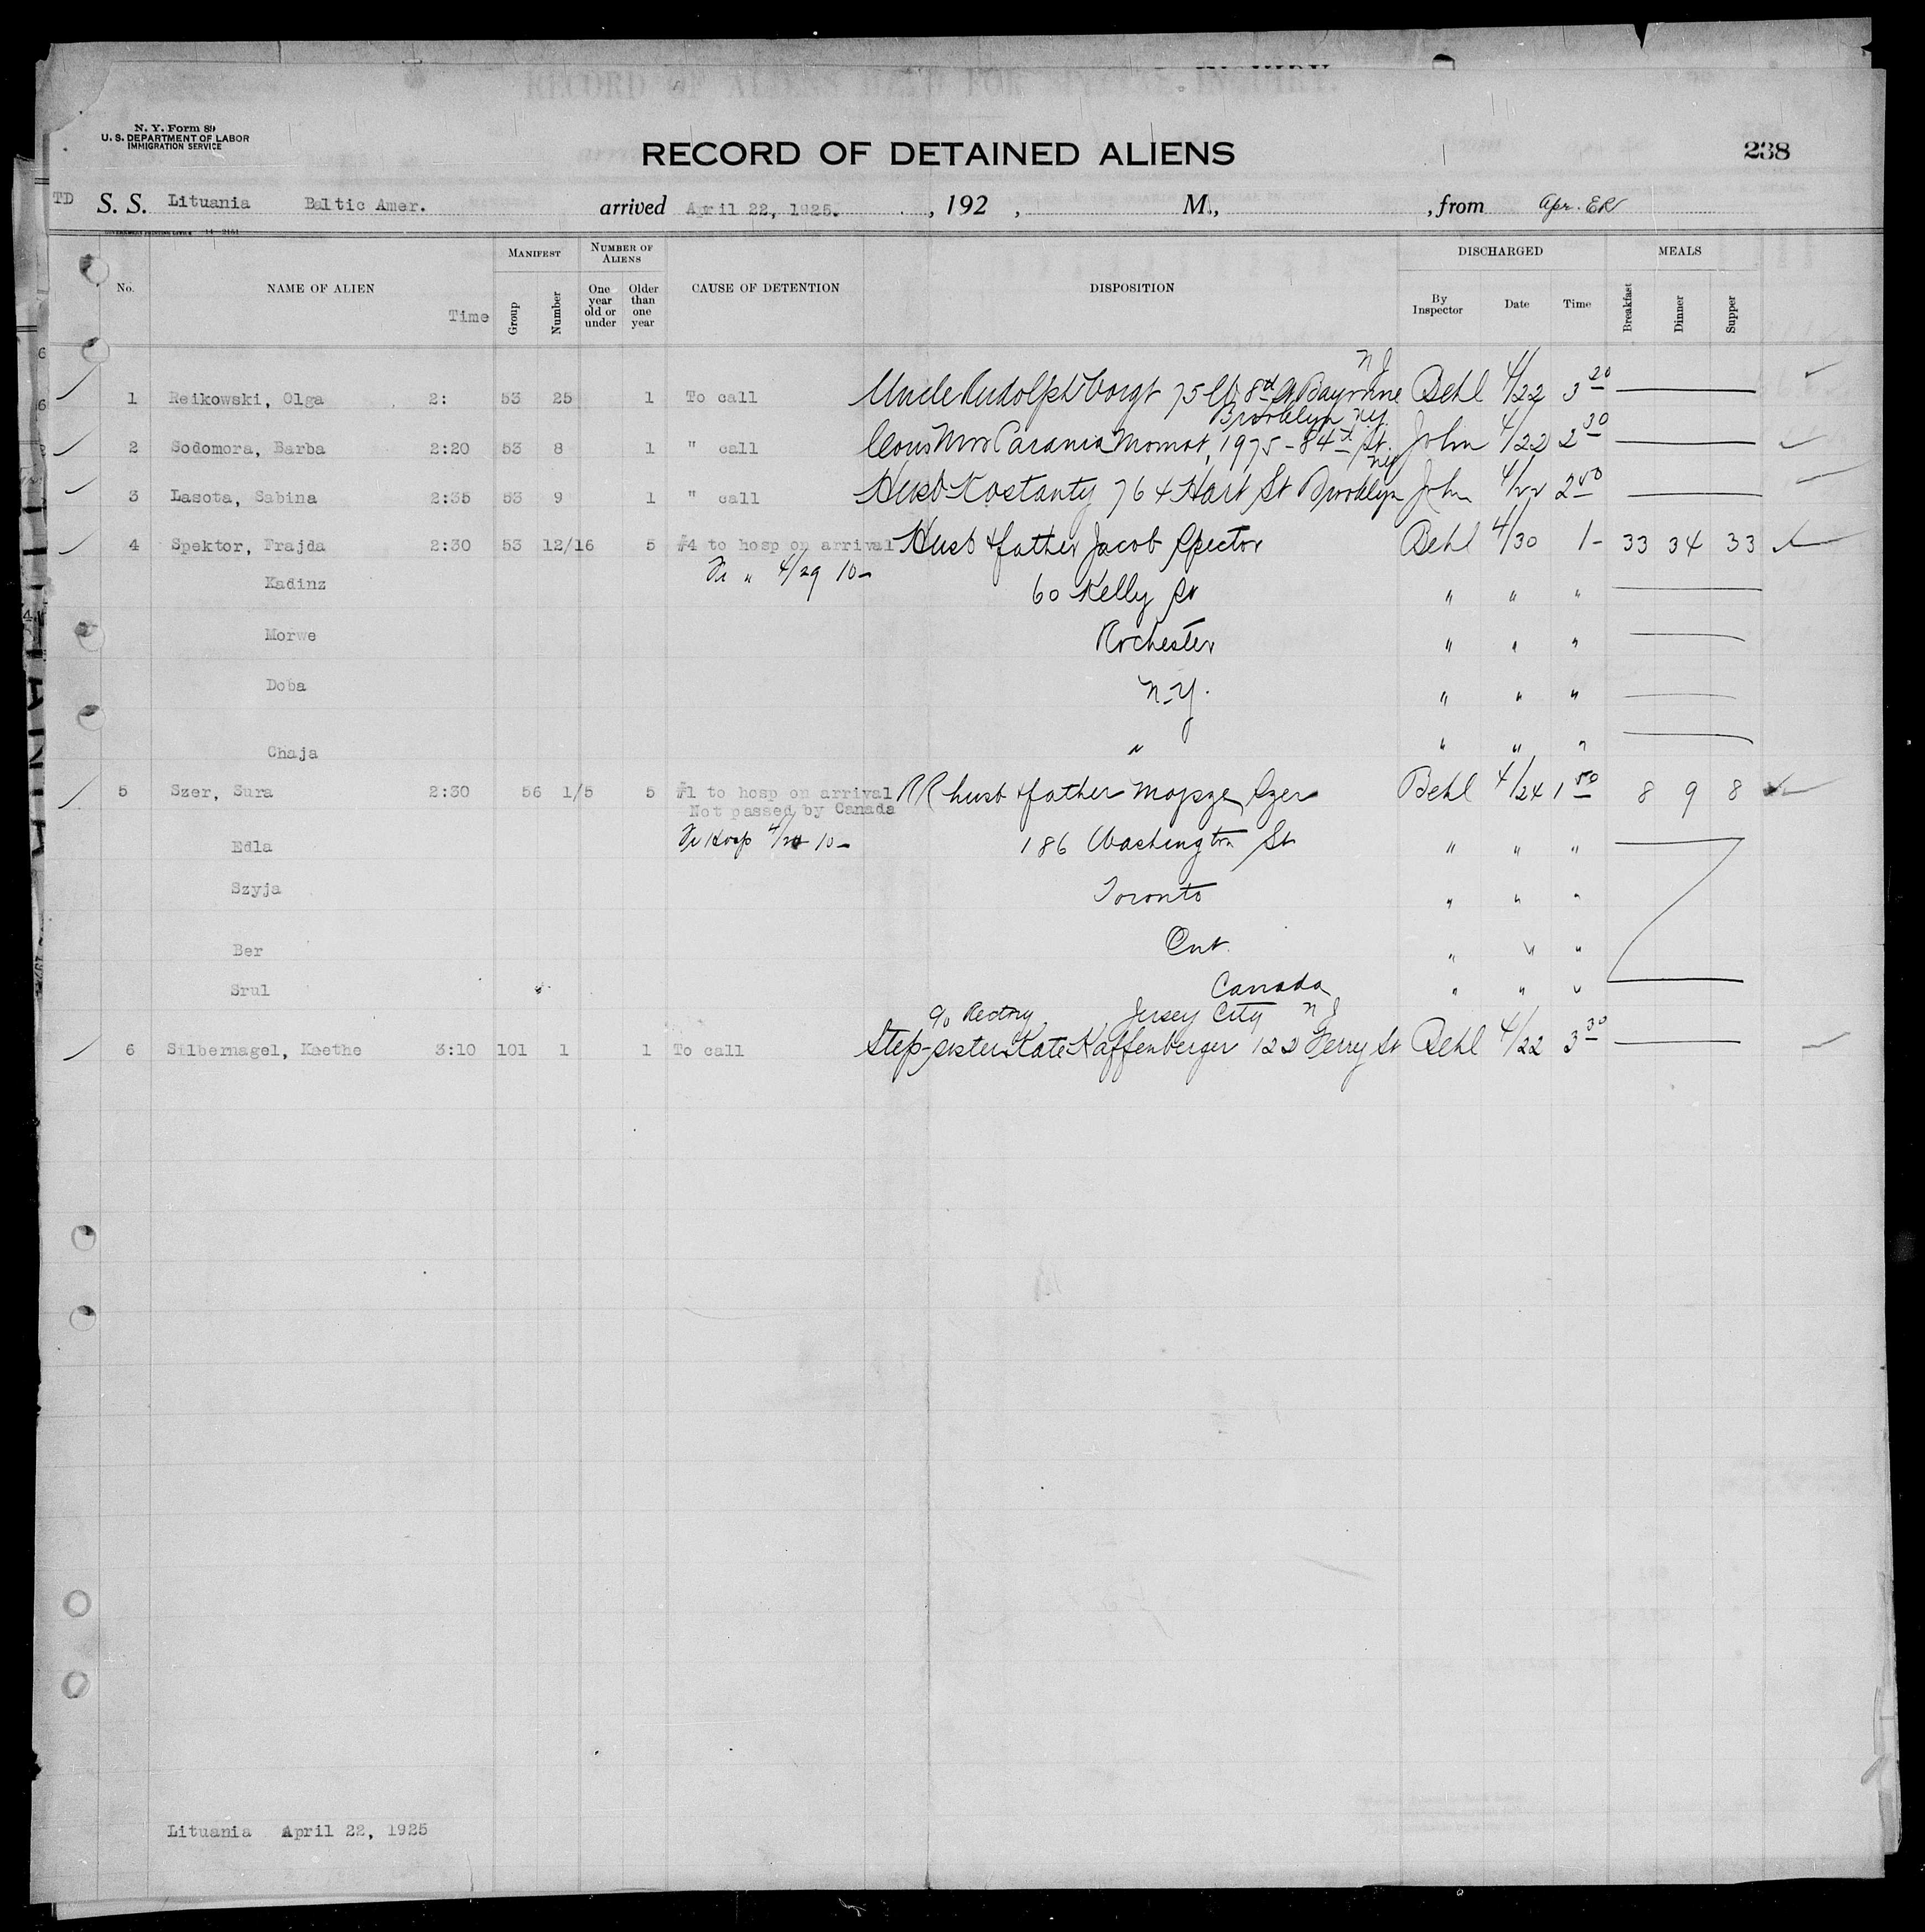 N. Y. Form 89
U. S. DEPARTMENT OF LABOR
IMMIGRATION SERVICE
RECORD OF DETAINED ALIENS
238
TD S. S. Lituania Baltic Amer. arrived April 22, 1925. , 192 , M., , from Apr. ER
GOVERNMENT PRINTING OFFICE 14—2151
No. NAME OF ALIEN Time MANIFEST Group Number NUMBER OF ALIENS One year old or under Older than one year CAUSE OF DETENTION DISPOSITION DISCHARGED By Inspector Date Time MEALS Breakfast Dinner Supper
N J
1 Reikowski, Olga 2: 53 25 1 To call Uncle Rudolph Voigt 75 W. 8th St Bayonne Behl 4/22 3 20
Brooklyn NY.
2 Sodomora, Barba 2:20 53 8 1 " call Cous Mrs Parania Momot, 1975 - 84th St. John 4/22 2 30
NY
3 Lasota, Sabina 2:35 53 9 1 " call Husb Kostanty 764 Hart St Brooklyn John 4/22 2 50
4 Spektor, Frajda 2:30 53 12/16 5 #4 to hosp on arrival Husb & father Jacob Spector Behl 4/30 1- 33 34 33
Fr " 4/29 10-
Kadinz 60 Kelly St " " "
Morwe Rochester " " "
Doba N.Y. " " "
Chaja " " " "
5 Szer, Sura 2:30 56 1/5 5 #1 to hosp on arrival RR husb & father Mojsze Szer Behl 4/24 1 50 8 9 8
Not passed by Canada
Edla Fr Hosp 10- 186 Washington St " " "
Szyja Toronto " " "
Ber Ont. " " "
Srul Canada " " "
c/o Rectory Jersey City N J
6 Silbernagel, Kaethe 3:10 101 1 1 To call Step-sister Kate Kaffenberger 122 Ferry St Behl 4/22 3 30
Lituania April 22, 1925